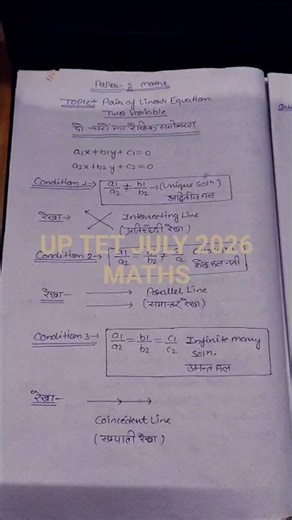 Paper-2 Maths
TOPIC+ Pair of Linear Equation
Two Variable
दो चरों का रैखिक समीकरण
a₁x+b₁y+c₁=0
a₂x+b₂y+c₂=0
Condition 1→ a₁/a₂ ≠ b₁/b₂ → (Unique soln)
अद्वितीय हल
रेखा→ Intersecting Line
(प्रतिच्छेदी रेखा)
UP TET JULY 2026
MATHS
Condition 2→ a₁/a₂ = b₁/b₂ ≠ c₁/c₂
कोई हल नहीं
रेखा→ Parallel Line
(समान्तर रेखा)
Condition 3→ a₁/a₂ = b₁/b₂ = c₁/c₂ Infinite many
soln.
अनन्त हल
रेखा→
Coincedent Line
(सम्पाती रेखा)